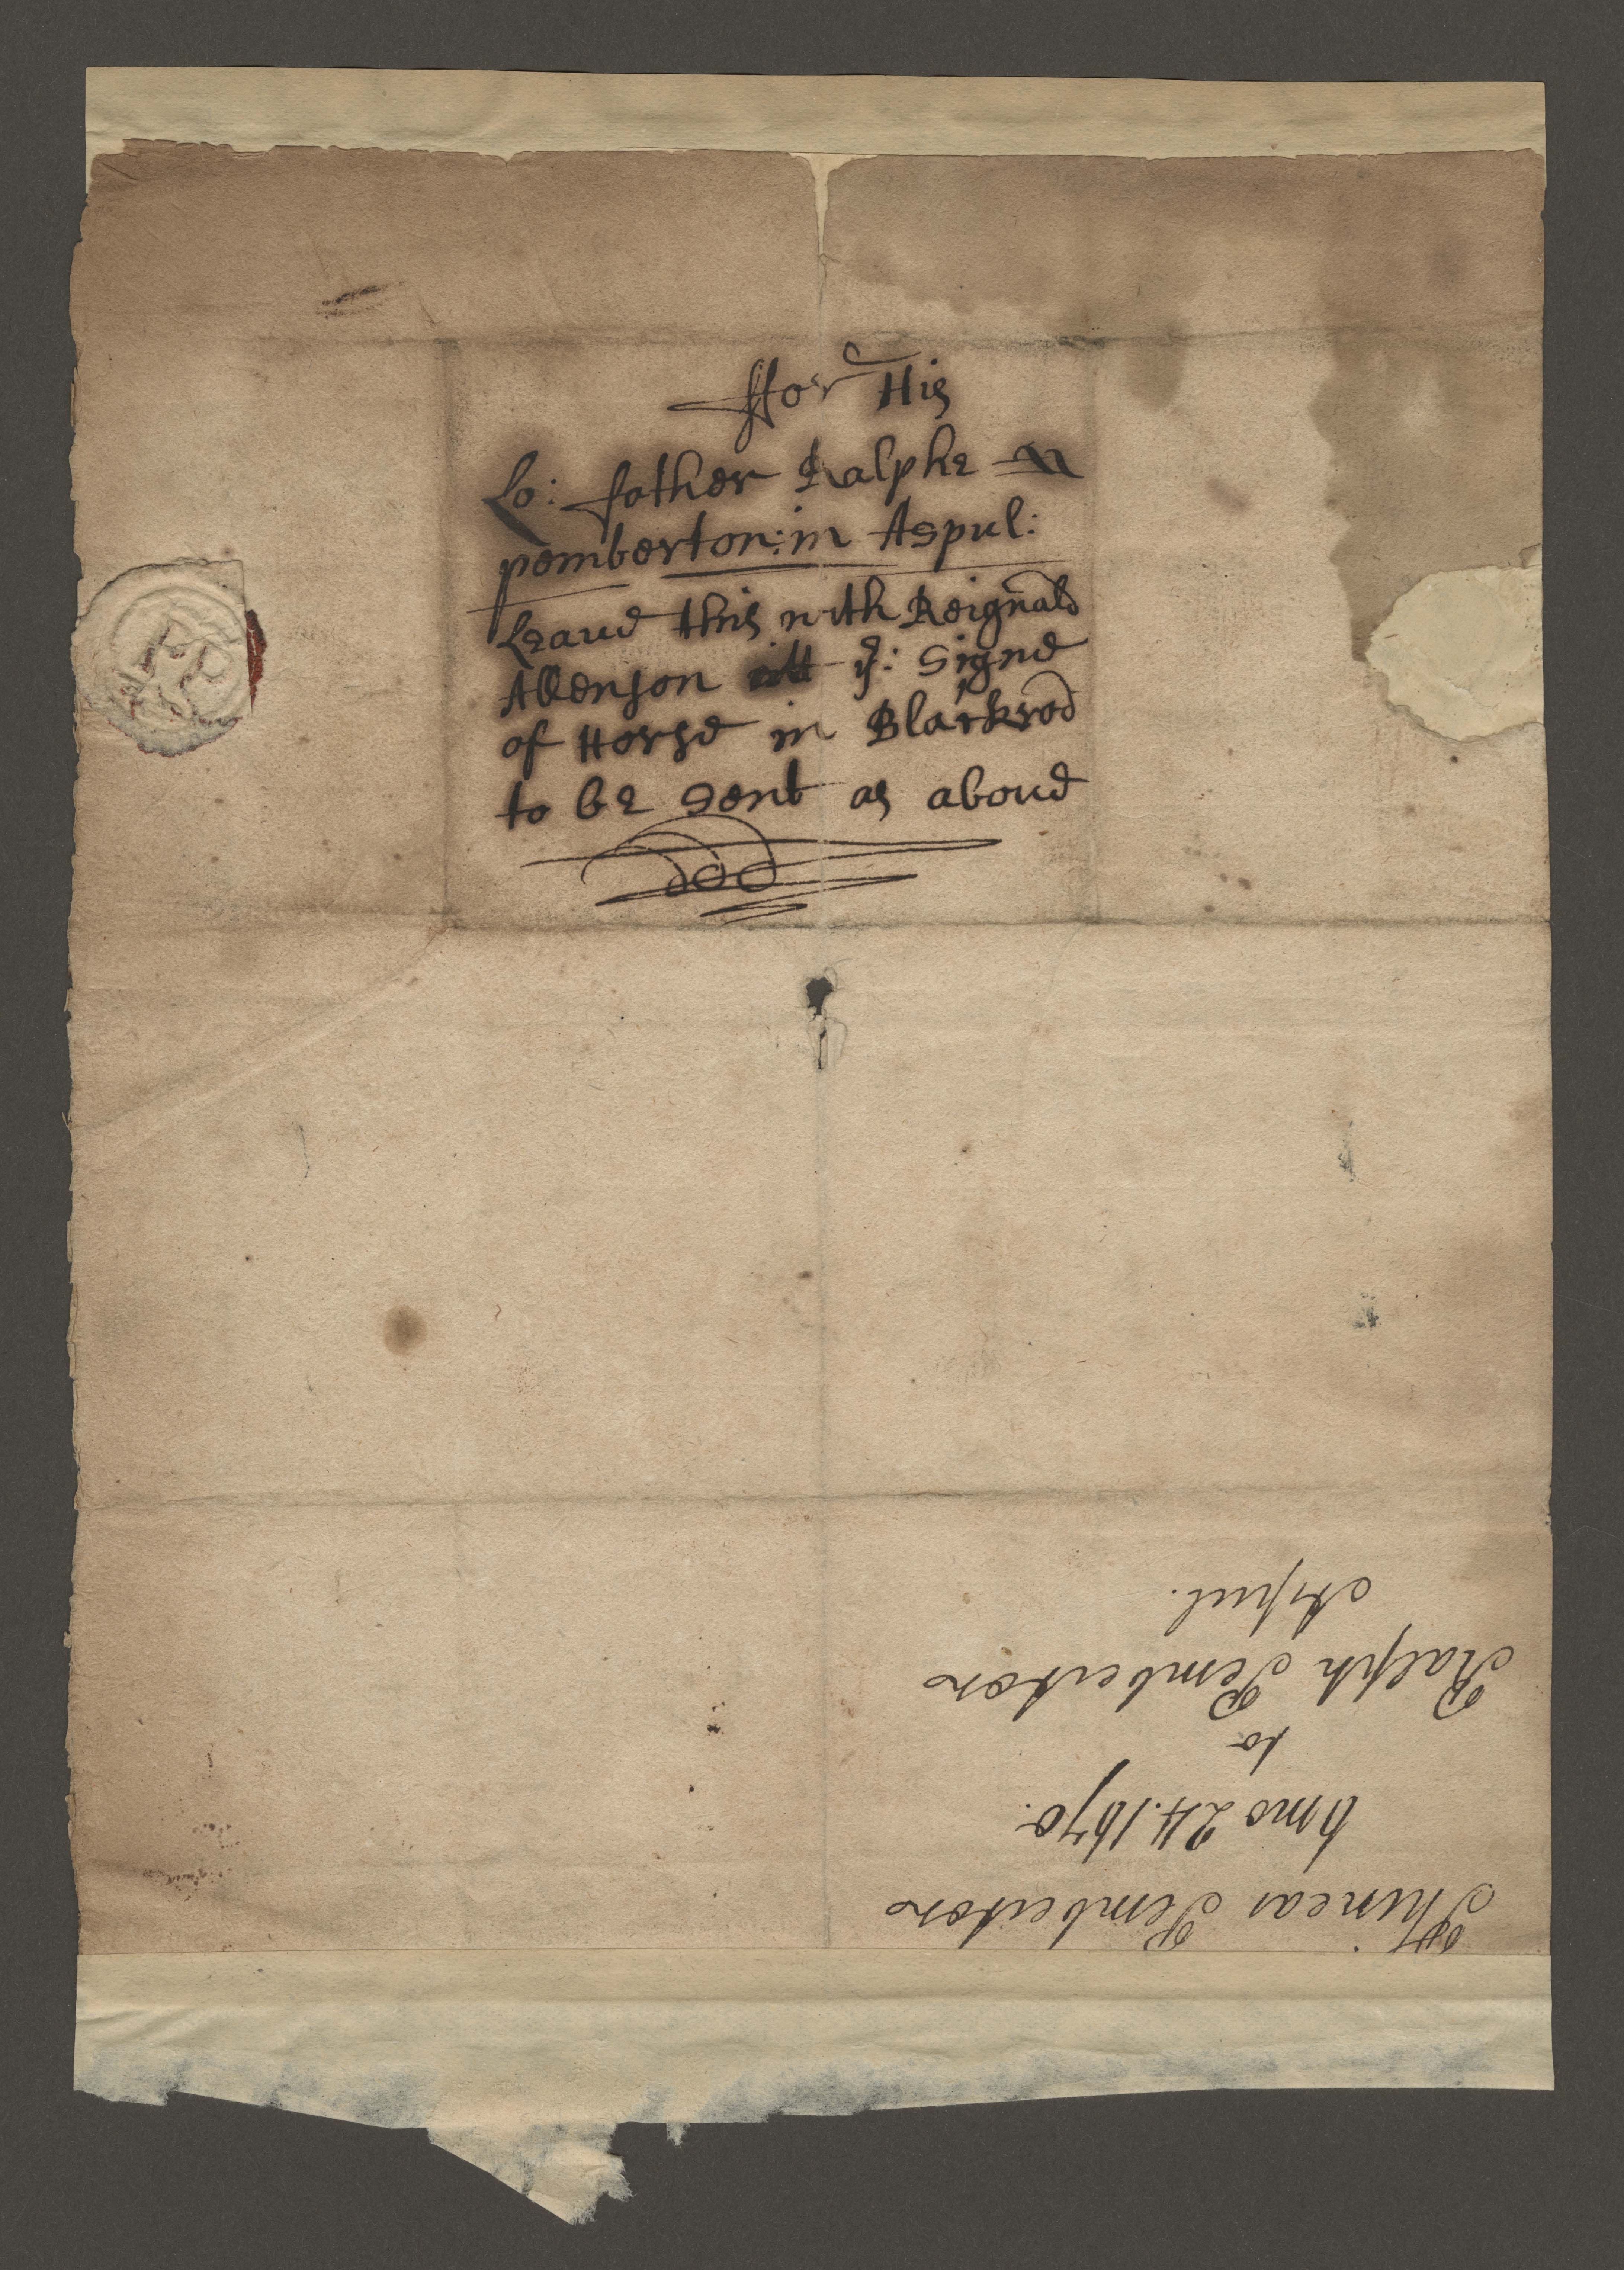 ffor His
Lo: father Ralphe
pemberton: in Aspul:
Leave this with Reignald
Allenson att ye: Signe
of Horse in Blackrod
to be Sent as above
Phineas Pemberton
6 mo 24. 1670.
to
Ralph Pemberton
Aspul.